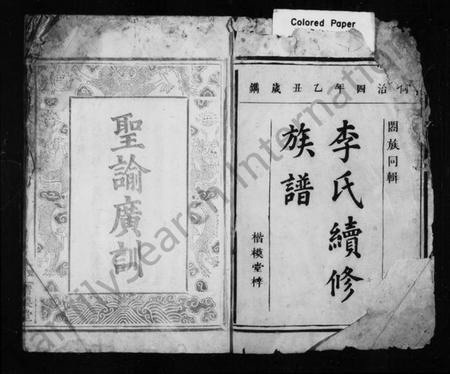 Colored Paper
同治四年乙丑歲鐫
闔族同輯
李氏續修
族譜
楷模堂梓
聖諭廣訓
FamilySearch International